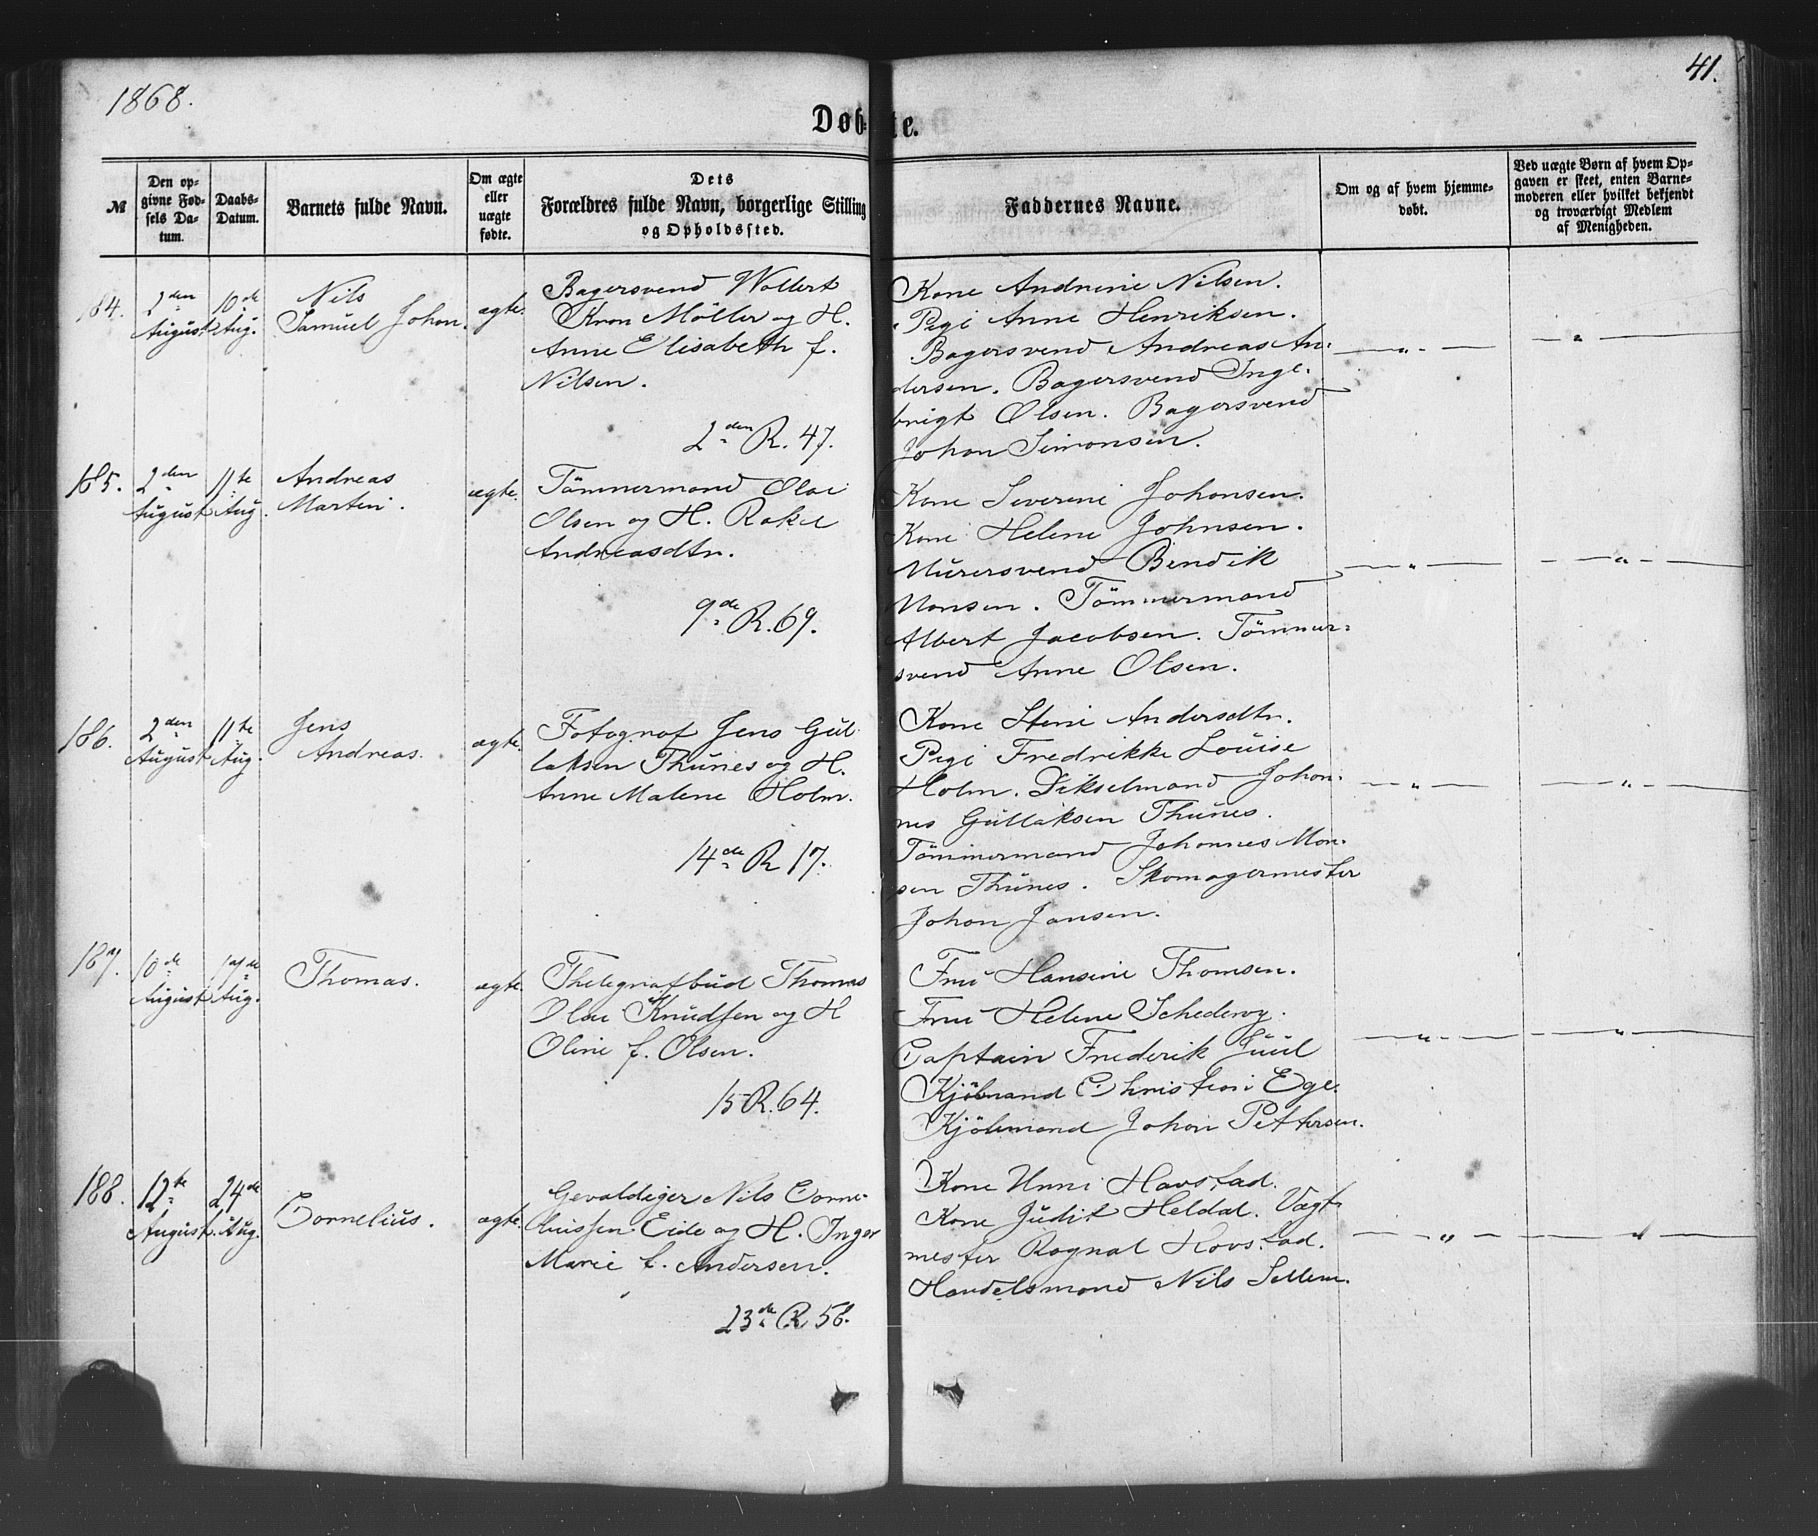 1868.
41.
Døbte.
№
Den opgivne Fødsels Datum.
Daabs-Datum.
Barnets fulde Navn.
Om ægte eller uægte fødte.
Dets Forældres fulde Navn, borgerlige Stilling og Opholdssted.
Faddernes Navne.
Om og af hvem hjemmedøbt.
Ved uægte Børn af hvem Opgaven er skeet, enten Barnemoderen eller hvilket bekjendt og troværdigt Medlem af Menigheden.
184.
2den August
10de Aug.
Nils
Samuel Johan.
ægte.
Bagersvend Wollert
Kron Möller og H.
Anne Elisabeth f.
Nilsen.
2den R. 47.
Kone Andrine Nilsen.
Pigi Anne Henriksen.
Bagersvend Andreas An-
dersen. Bagersvend Inge-
brigt Olsen. Bagersvend
Johan Simonsen.
— " —
— " —
185.
2den August
11te Aug.
Andreas
Martin.
ægte.
Tömmermand Olai
Olsen og H. Rakel
Andreasdtn.
9de R. 69.
Kone Severine Johansen.
Kone Helene Johnsen.
Murersvend Bendik
Monsen. Tömmermand
Albert Jacobsen. Tömmer-
svend Arne Olsen.
— " —
— " —
186.
2den August
11te Aug.
Jens
Andreas.
ægte.
Fotograf Jens Gul-
laksen Thunes og H.
Anne Malene Holm.
14de R 17.
Kone Stine Andersdtn.
Pigi Fredrikke Louise
Holm. Dikselmand Johan-
nes Gullaksen Thunes.
Tömmermand Johannes Mon-
sen Thunes. Skomagermester
Johan Jansen.
— " —
— " —
187.
10de August
17de Aug.
Thomas.
ægte.
Thelegrafbud Thomas
Olai Knudsen og H
Oline f. Olsen.
15 R. 64.
Fru Hansine Thomsen.
Fru Helene
Captain Frederik Juul
Kjöbmand Christian Ege.
Kjöbmand Johan Pettersen.
— " —
— " —
188.
12te August
24de Aug.
Cornelius.
ægte.
Gevaldiger Nils Corne-
liussen Eide og H. Inger
Marie f. Andersen.
23de R 58.
Kone Unni Havstad.
Kone Judit Heldal. Vægt-
mester Ragnal Havstad.
Handelsmand Nils Sellem.
— " —
— " —